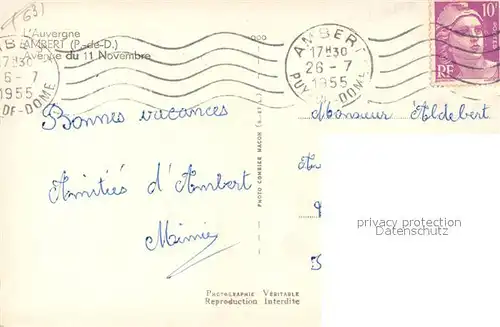 (63)
L'Auvergne
AMBERT (P.-de-D.)
Avenue du 11 Novembre
AMBERT
17H30
26-7
1955
PUY-DE-DOME
AMBERT
17H30
26-7
1955
PUY-DE-DOME
10F
RF
Bonnes vacances
Amitiés d'Ambert
Mimie
Monsieur Aldebert
PHOTO COMBIER MACON
Photographie Véritable
Reproduction Interdite
privacy protection
Datenschutz